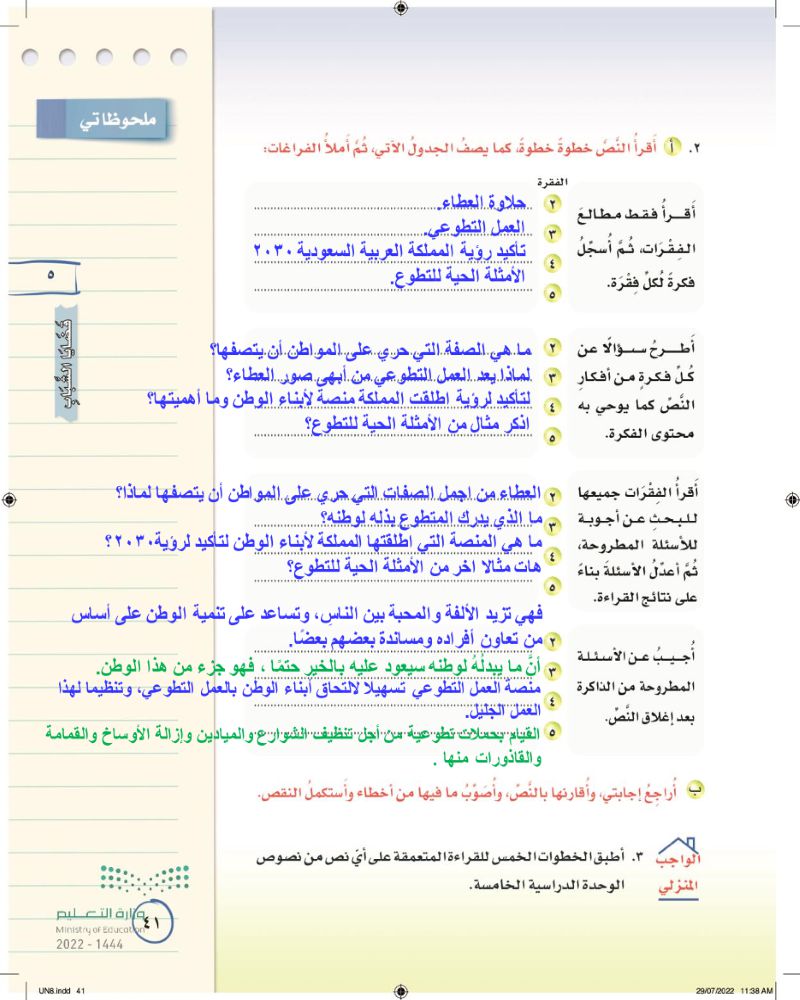 ملحوظاتي
٢. أ أَقرأُ النَّصَّ خطوةً خطوةً، كما يصفُ الجدولُ الآتي، ثُمَّ أَملأُ الفراغات:
الفقرة
أَقــرأُ فقـط مطـالعَ
الفِقْرَات، ثُمَّ أُسجِّلُ
فكرةً لكلِّ فِقْرَة.
٢ حلاوة العطاء.
٣ العمل التطوعي.
٤ تأكيد رؤية المملكة العربية السعودية ٢٠٣٠
٥ الأمثلة الحية للتطوع.
٥
قضايا الشباب
أَطــرحُ ســؤالًا عن
كُـلِّ فكـرةٍ مـن أفكـارِ
النَّصِّ كما يوحي به
محتوى الفكرة.
٢ ما هي الصفة التي حري على المواطن أن يتصفها؟
٣ لماذا يعد العمل التطوعي من أبهى صور العطاء؟
٤ لتأكيد لرؤية اطلقت المملكة منصة لأبناء الوطن وما أهميتها؟
٥ اذكر مثال من الأمثلة الحية للتطوع؟
أَقرأُ الفِقْرَات جميعها
للبحثِ عـن أجوبـة
للأسئلة المطروحة،
ثُمَّ أُعدِّلُ الأسئلةَ بناءً
على نتائج القراءة.
٢ العطاء من اجمل الصفات التي حري على المواطن أن يتصفها لماذا؟
٣ ما الذي يدرك المتطوع بذله لوطنه؟
٤ ما هي المنصة التي اطلقتها المملكة لأبناء الوطن لتأكيد لرؤية٢٠٣٠؟
٥ هات مثالا اخر من الأمثلة الحية للتطوع؟
أُجيبُ عـن الأسـئلة
المطروحة من الذاكرة
بعد إغلاق النَّصِّ.
فهي تزيد الألفة والمحبة بين الناسِ، وتساعد على تنمية الوطن على أساس
٢ من تعاون أفراده ومساندة بعضهم بعضًا.
٣ أنَّ ما يبدلُهُ لوطنه سيعود عليه بالخير حتمًا ، فهو جزء من هذا الوطن.
٤ منصة العمل التطوعي تسهيلًا لالتحاق أبناء الوطن بالعمل التطوعي، وتنظيما لهذا
العمل الجليل.
٥ القيام بحملات تطوعية من أجل تنظيف الشوارع والميادين وإزالة الأوساخ والقمامة
والقاذورات منها .
ب أُراجِعُ إجابتي، وأُقارنها بالنَّصِّ، وأُصَوِّبُ ما فيها من أخطاء وأَستكملُ النقص.
الواجب
المنزلي
٣. أطبق الخطوات الخمس للقراءة المتعمقة على أيّ نص من نصوص
الوحدة الدراسية الخامسة.
وزارة التعـليم
Ministry of Education
2022 - 1444
٤١
UN8.indd 41
29/07/2022 11:38 AM